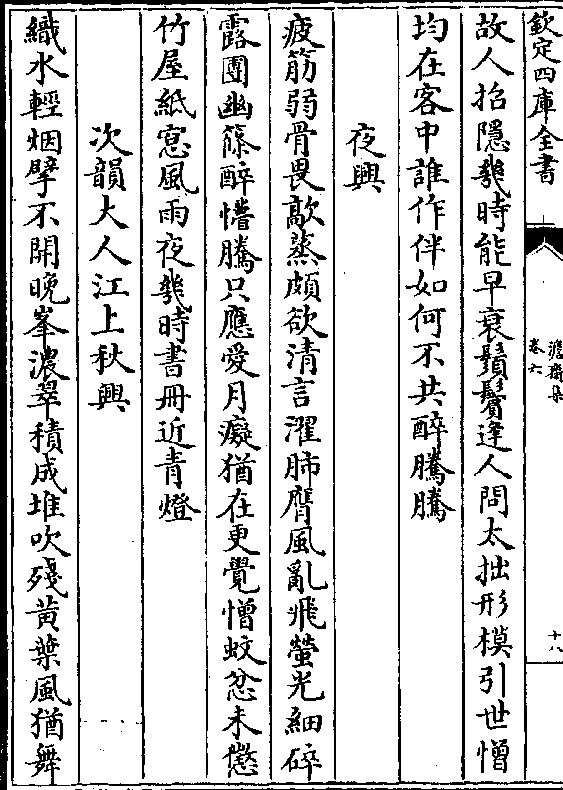 欽定四庫全書
澹齋集
卷六
十八
故人招隱幾時能早衰鬚鬢逢人問太拙形模引世憎
均在客中誰作伴如何不共醉騰騰
夜興
疲筋弱骨畏歊蒸頗欲清言濯肺膺風亂飛螢光細碎
露團幽篠醉懵騰只應愛月癡猶在更覺憎蚊忿未懲
竹屋紙窓風雨夜幾時書冊近青燈
次韻大人江上秋興
織水輕烟擘不開晚峯濃翠積成堆吹殘黄葉風猶舞